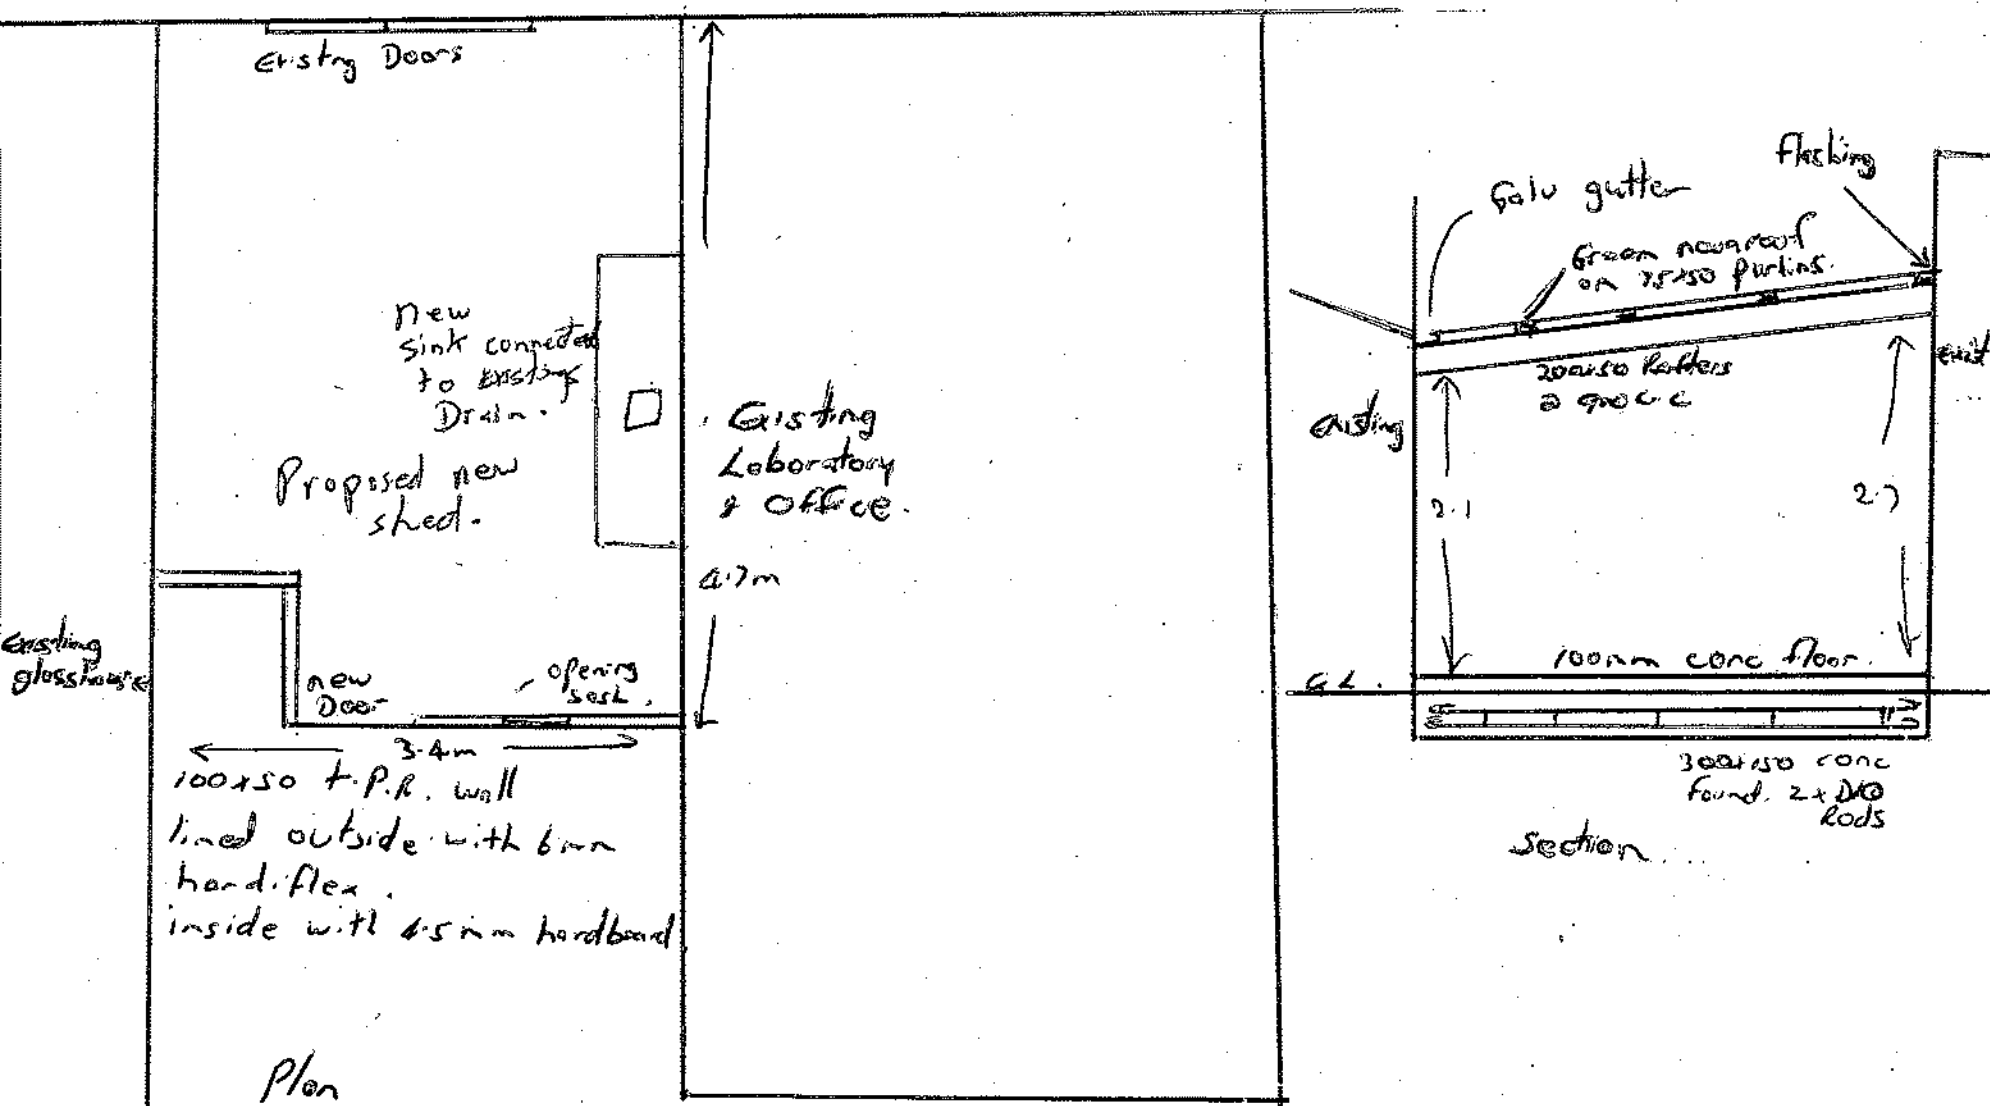 Existing Doors
new
sink connected
to existing
Drain.
Proposed new
shed.
Existing
Laboratory
& Office.
4.7m
Existing
glasshouse
new
Door
opening
sash.
3.4m
100x50 t.P.R. wall
lined outside with 6mm
hardiflex.
inside with 4.5mm hardboard
Plan
Flashing
Galv gutter
Green novaroof
on 75x50 Purlins.
200x50 Rafters
@ 900 c.c
existing
exist
2.1
2.7
100mm conc floor.
G.L.
300x150 conc
found. 2x D10
Rods
Section